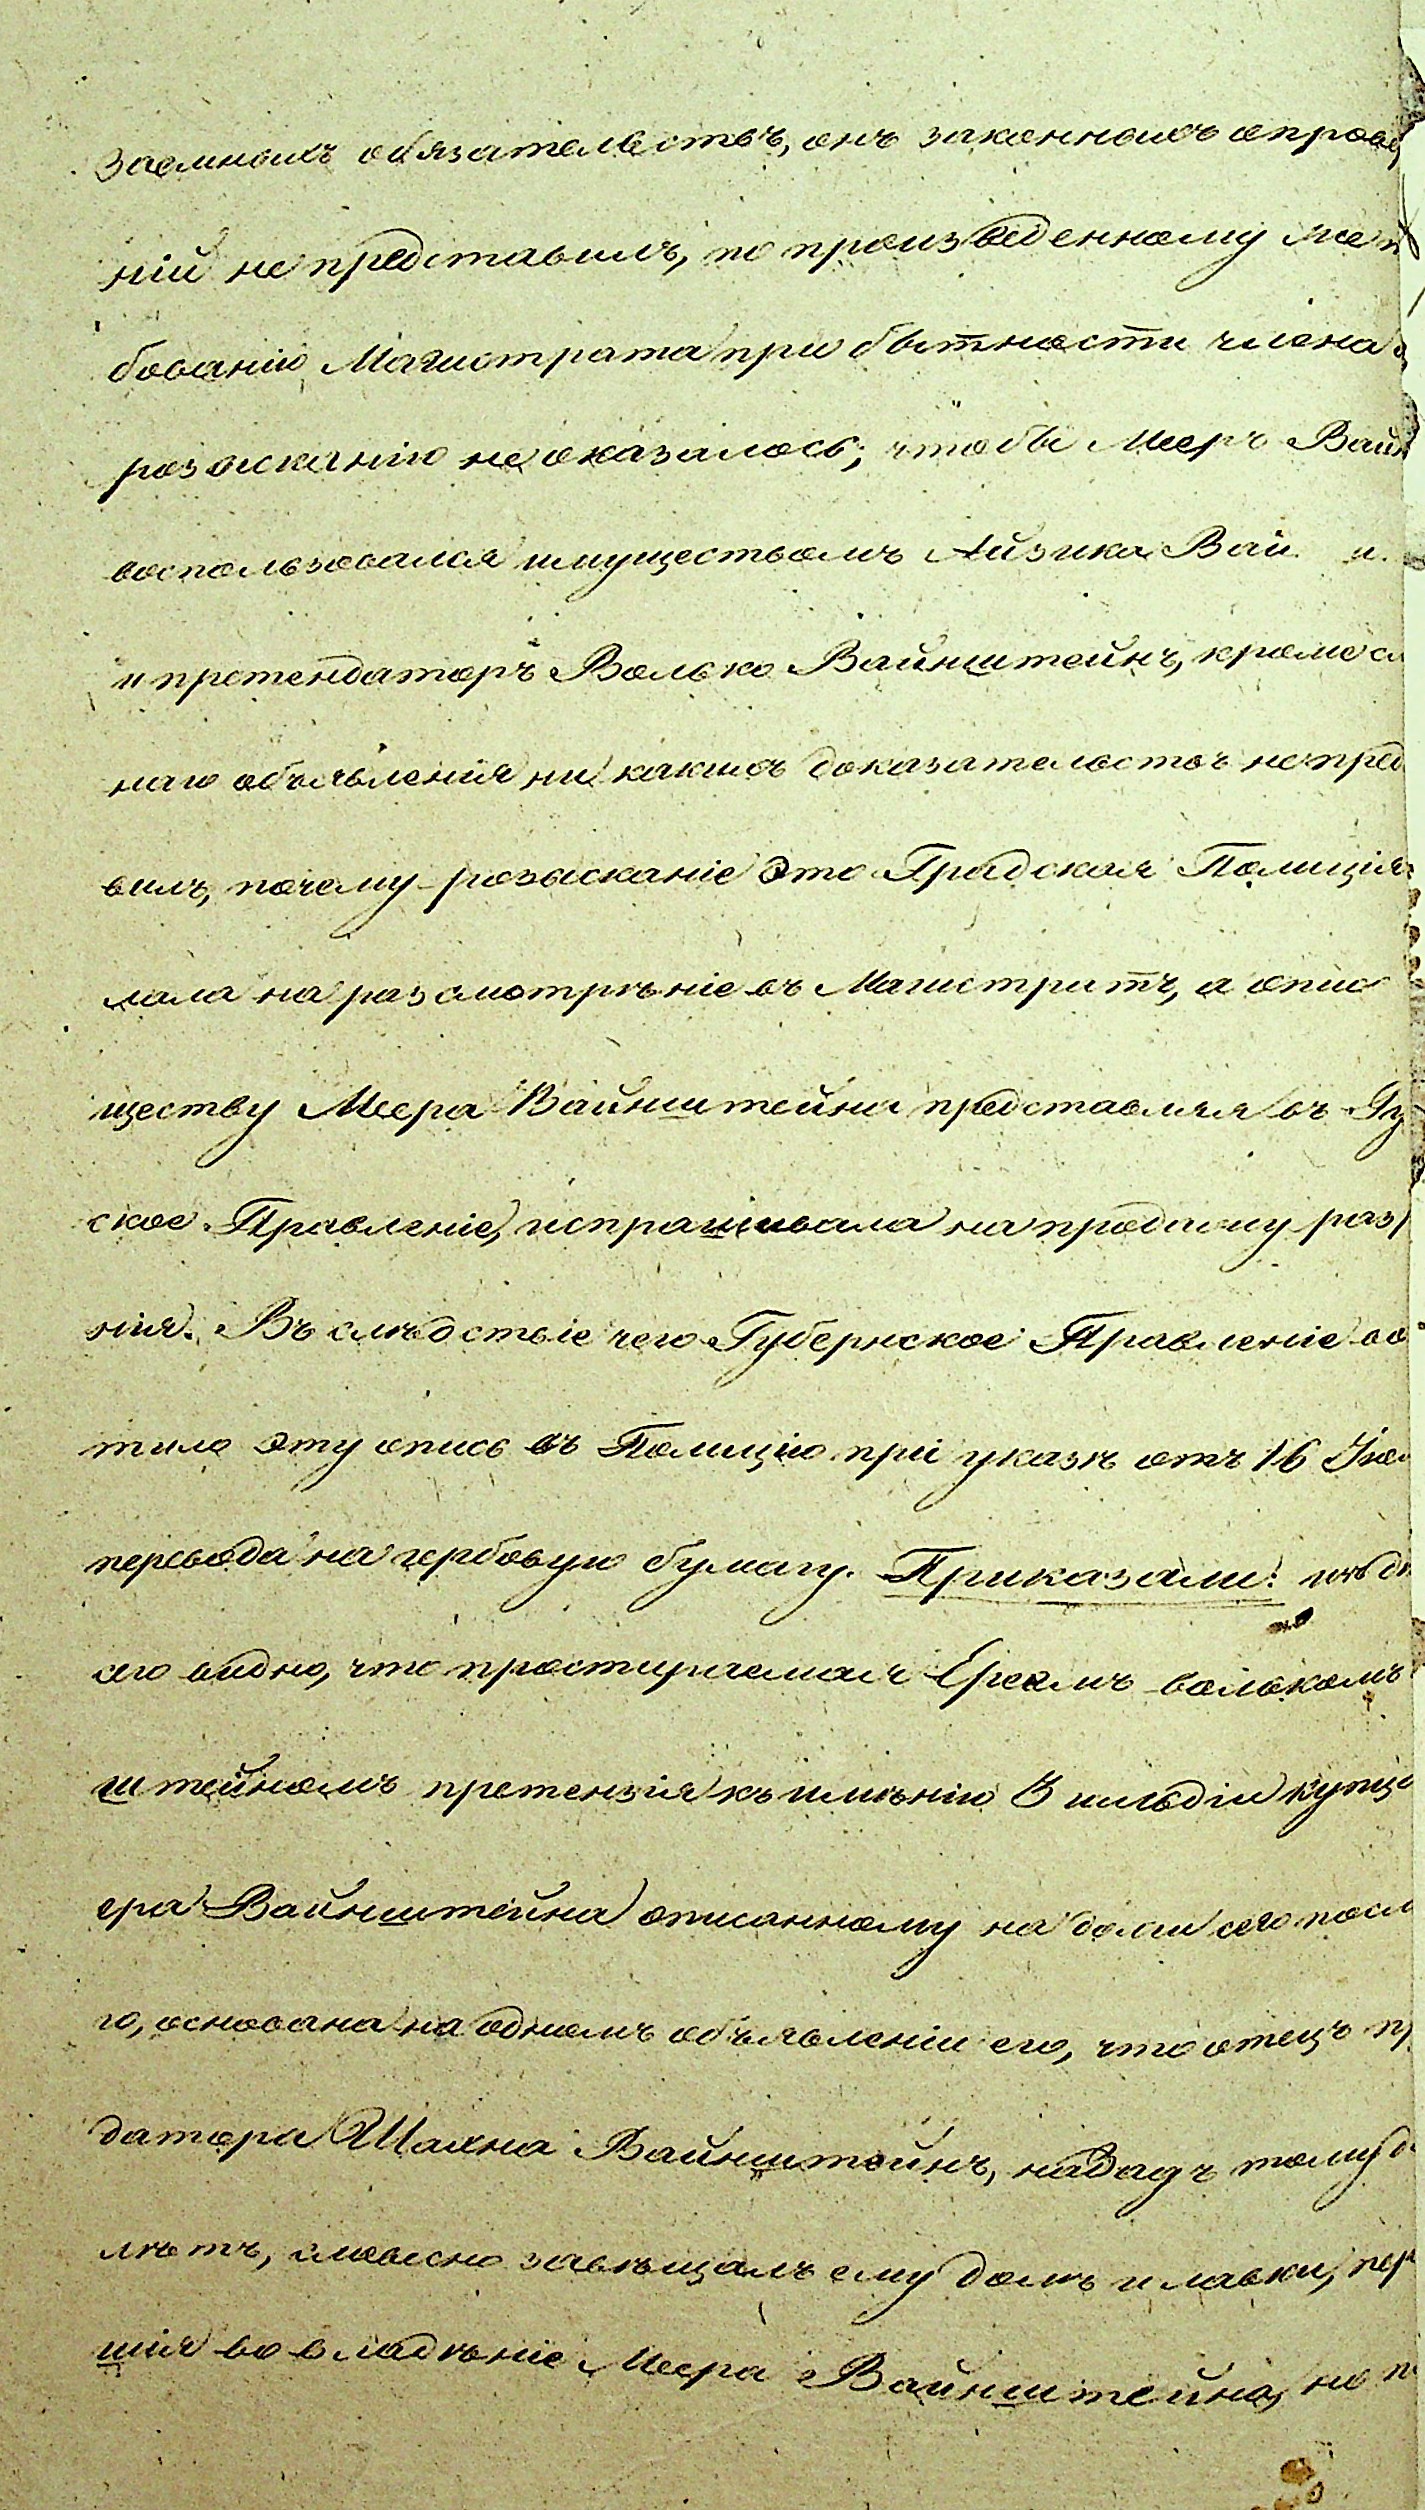 заемныхъ обязательствъ, онъ законныхъ опровер
ній не представилъ, по произведенному же п
бованію Магистрата при бытности члена
розысканію не оказалось; чтобы Мееръ Вайн
воспользовался имуществомъ Айзика Вай н.
и претендаторъ Волько Вайнштейнъ, кроме сл
наго объявленія ни какихъ доказательствъ непред
вилъ, почему розысканіе это Градская Полиція
лала на разсмотрѣніе въ Магистратъ, а опис
ществу Меера Вайнштейна представляя въ Гу
ское Правленіе, испрашивала на продажу разр
нія. Въ слѣдствіе чего Губернское Правленіе во
тило эту опись въ Полицію при указѣ отъ 16 Іюл
перевода на гербовую бумагу. Приказали: изъ дѣ
сего видно, что простираемая Ерсомъ Волькомъ
штейномъ претензія къ имѣнію 3 гильдіи купца
ера Вайнштейна описанному на долги сего посл
го, основана на одномъ объявленіи его, что отецъ пр
датора Шахна Вайнштейнъ, назадъ тому
лѣтъ, словесно завѣщалъ ему домъ и лавки, пер
шія во владѣніе Меера Вайнштейна, но